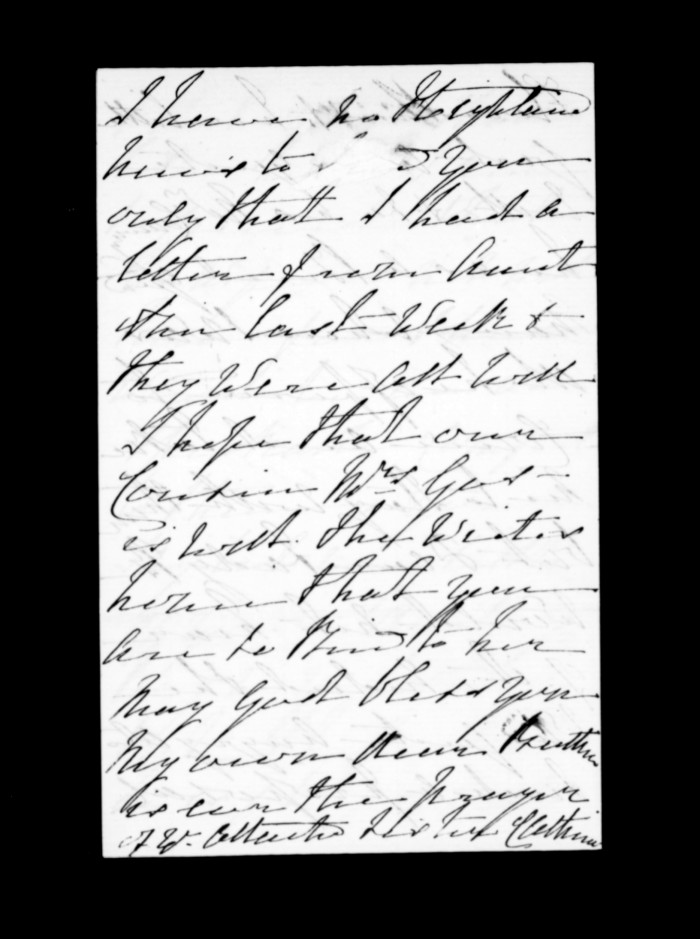 I have no Highland
news to you
only that I had a
letter from Aunt
last Week &
they Were all Well
I hope that our
Cousin Mrs
is Well. She Writes
home that you
are so Kind to her
may god bless you
My own dear Brother
is ever the prayer
of yr. Attached Sister